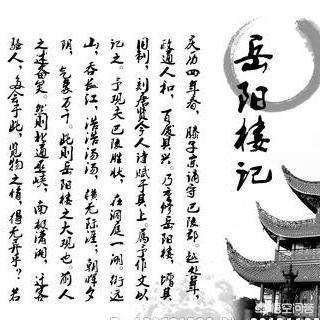 岳阳楼记
庆历四年春，滕子京谪守巴陵郡。越明年，
政通人和，百废具兴。乃重修岳阳楼，增其
旧制，刻唐贤今人诗赋于其上。属予作文以
记之。予观夫巴陵胜状，在洞庭一湖。衔远
山，吞长江，浩浩汤汤，横无际涯；朝晖夕
阴，气象万千。此则岳阳楼之大观也。前人
之述备矣。然则北通巫峡，南极潇湘，迁客
骚人，多会于此，览物之情，得无异乎？若
悟空问答